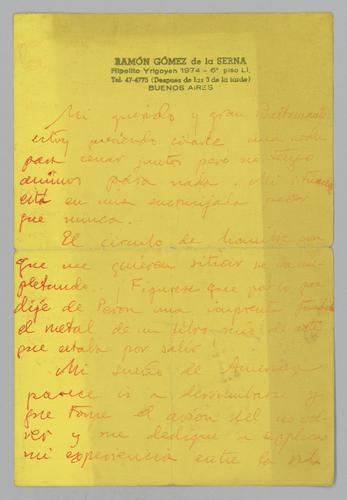 RAMÓN GÓMEZ de la SERNA
Hipolito Yrigoyen 1974 - 6º piso LI.
Tel. 47-4775 (Despues de las 3 de la tarde)
BUENOS AIRES
Mi querido y gran
estoy queriendo citarte una noche
para cenar juntos pero no tengo
animos para nada. Mi situación
está en una encrucijada peor
que nunca.
El circulo de hambre con
que me quieren sitiar se va
pletando. ! Figurese que por lo que
dije de Peron una imprenta fundió
el metal de un libro mio de arte
que estaba por salir!
Mi sueño de America
parece va a derrumbarse y
que tome el avion del no vol-
ver y me dedique a explicar
mi experiencia entre la vida